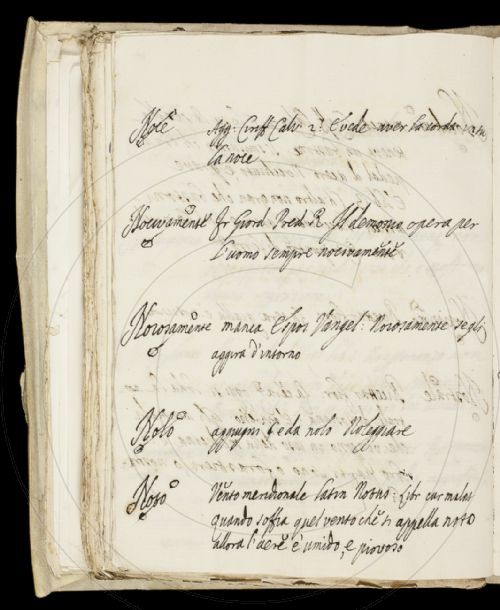 Noce Agg: Ciriff Calv: 2: E vede aver la corda
la noce
Nocivamente Fr Giord Pred R Il demonio opera per
l'uomo sempre nocivamente
Noiosamente manca Espos Vangel: Noiosamente se gli
aggira d'intorno
Nolo aggiugni e da nolo Noleggiare
Noto Vento meridionale Latin Notus: Libr cur malat
quando soffia quel vento che si appella noto
allora l'aere è umido, e piovoso